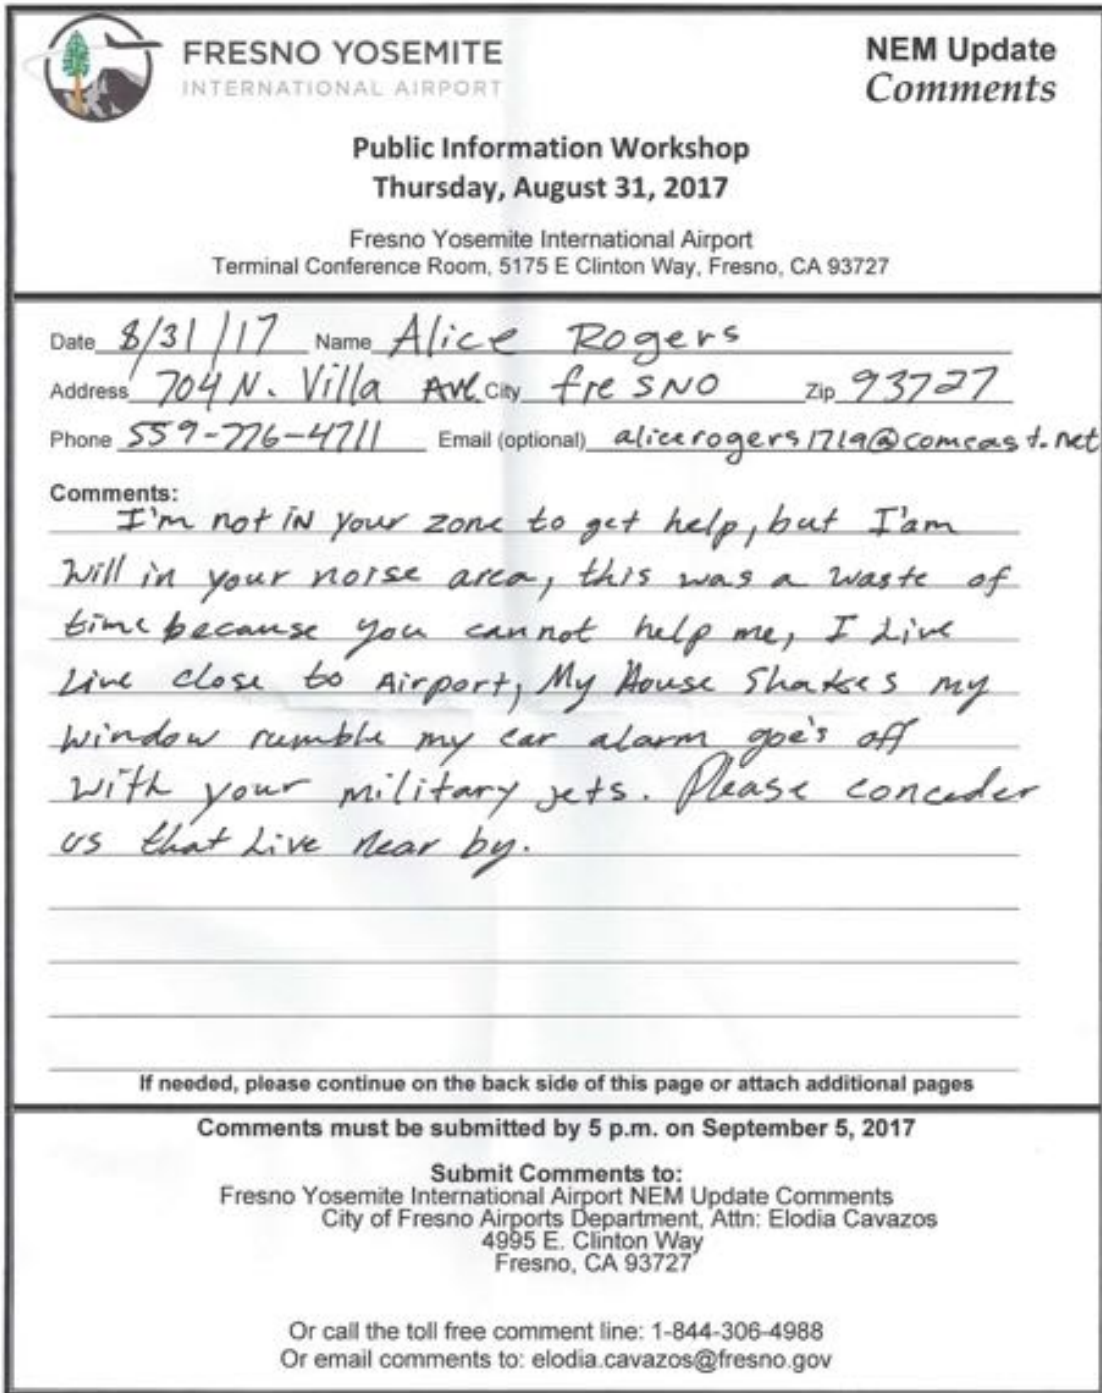 FRESNO YOSEMITE
INTERNATIONAL AIRPORT
NEM Update
Comments
Public Information Workshop
Thursday, August 31, 2017
Fresno Yosemite International Airport
Terminal Conference Room, 5175 E Clinton Way, Fresno, CA 93727
Date 8/31/17 Name Alice Rogers
Address 704 N. Villa Ave City fresno Zip 93727
Phone 559-776-4711 Email (optional) alicerogers1719@comcast.net
Comments:
I'm not in your zone to get help, but I'am
Will in your noise area, this was a waste of
time because you cannot help me, I Live
Live close to Airport, My House Shakes my
window rumble my car alarm goe's off
With your military jets. Please conceder
us that Live Near by.
If needed, please continue on the back side of this page or attach additional pages
Comments must be submitted by 5 p.m. on September 5, 2017
Submit Comments to:
Fresno Yosemite International Airport NEM Update Comments
City of Fresno Airports Department, Attn: Elodia Cavazos
4995 E. Clinton Way
Fresno, CA 93727
Or call the toll free comment line: 1-844-306-4988
Or email comments to: elodia.cavazos@fresno.gov